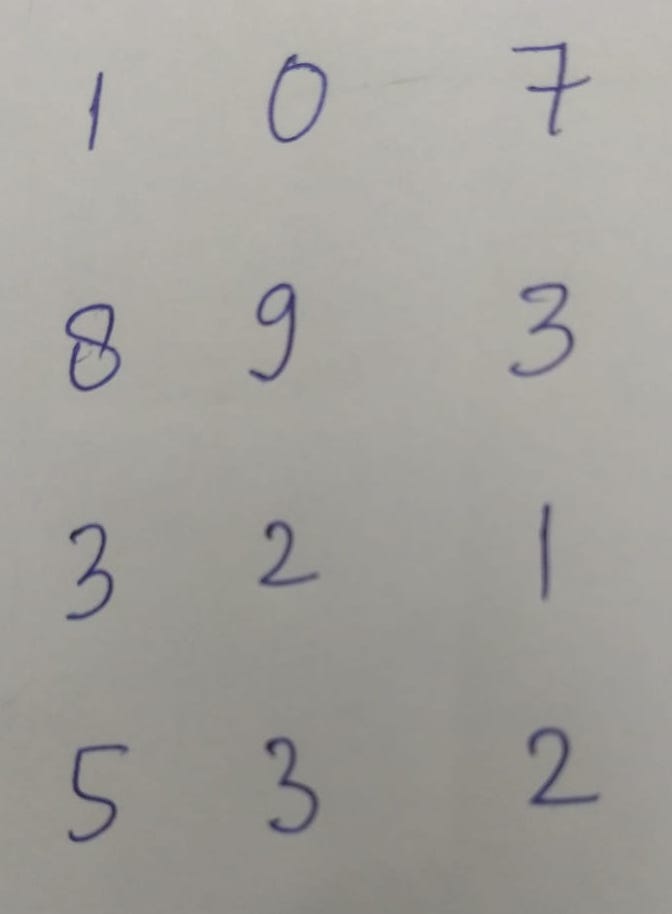 1 0 7
8 9 3
3 2 1
5 3 2